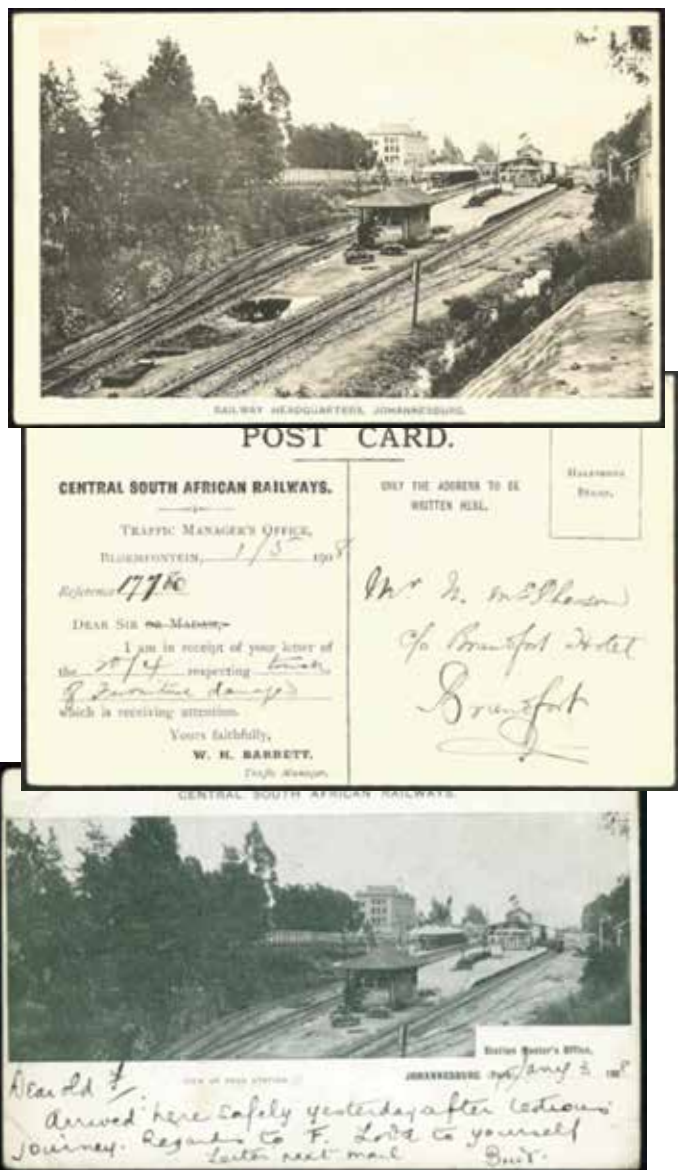 RAILWAY HEADQUARTERS, JOHANNESBURG.
POST CARD.
CENTRAL SOUTH AFRICAN RAILWAYS.
TRAFFIC MANAGER'S OFFICE,
BLOEMFONTEIN, 1/5 1908
Reference 17760
DEAR SIR OR MADAM,-
I am in receipt of your letter of
the 20/4 respecting
of Furniture damaged
which is receiving attention.
Yours faithfully,
W. H. BARRETT,
Traffic Manager.
ONLY THE ADDRESS TO BE
WRITTEN HERE.
HALFPENNY
STAMP.
Mr N. McPherson
c/o Brandfort Hotel
Brandfort
CENTRAL SOUTH AFRICAN RAILWAYS.
VIEW OF PARK STATION
Station Master's Office,
JOHANNESBURG (Park) 3 190
Dear old F.
Arrived here safely yesterday after tedious
journey. Regards to F. Love to yourself
Letter next mail